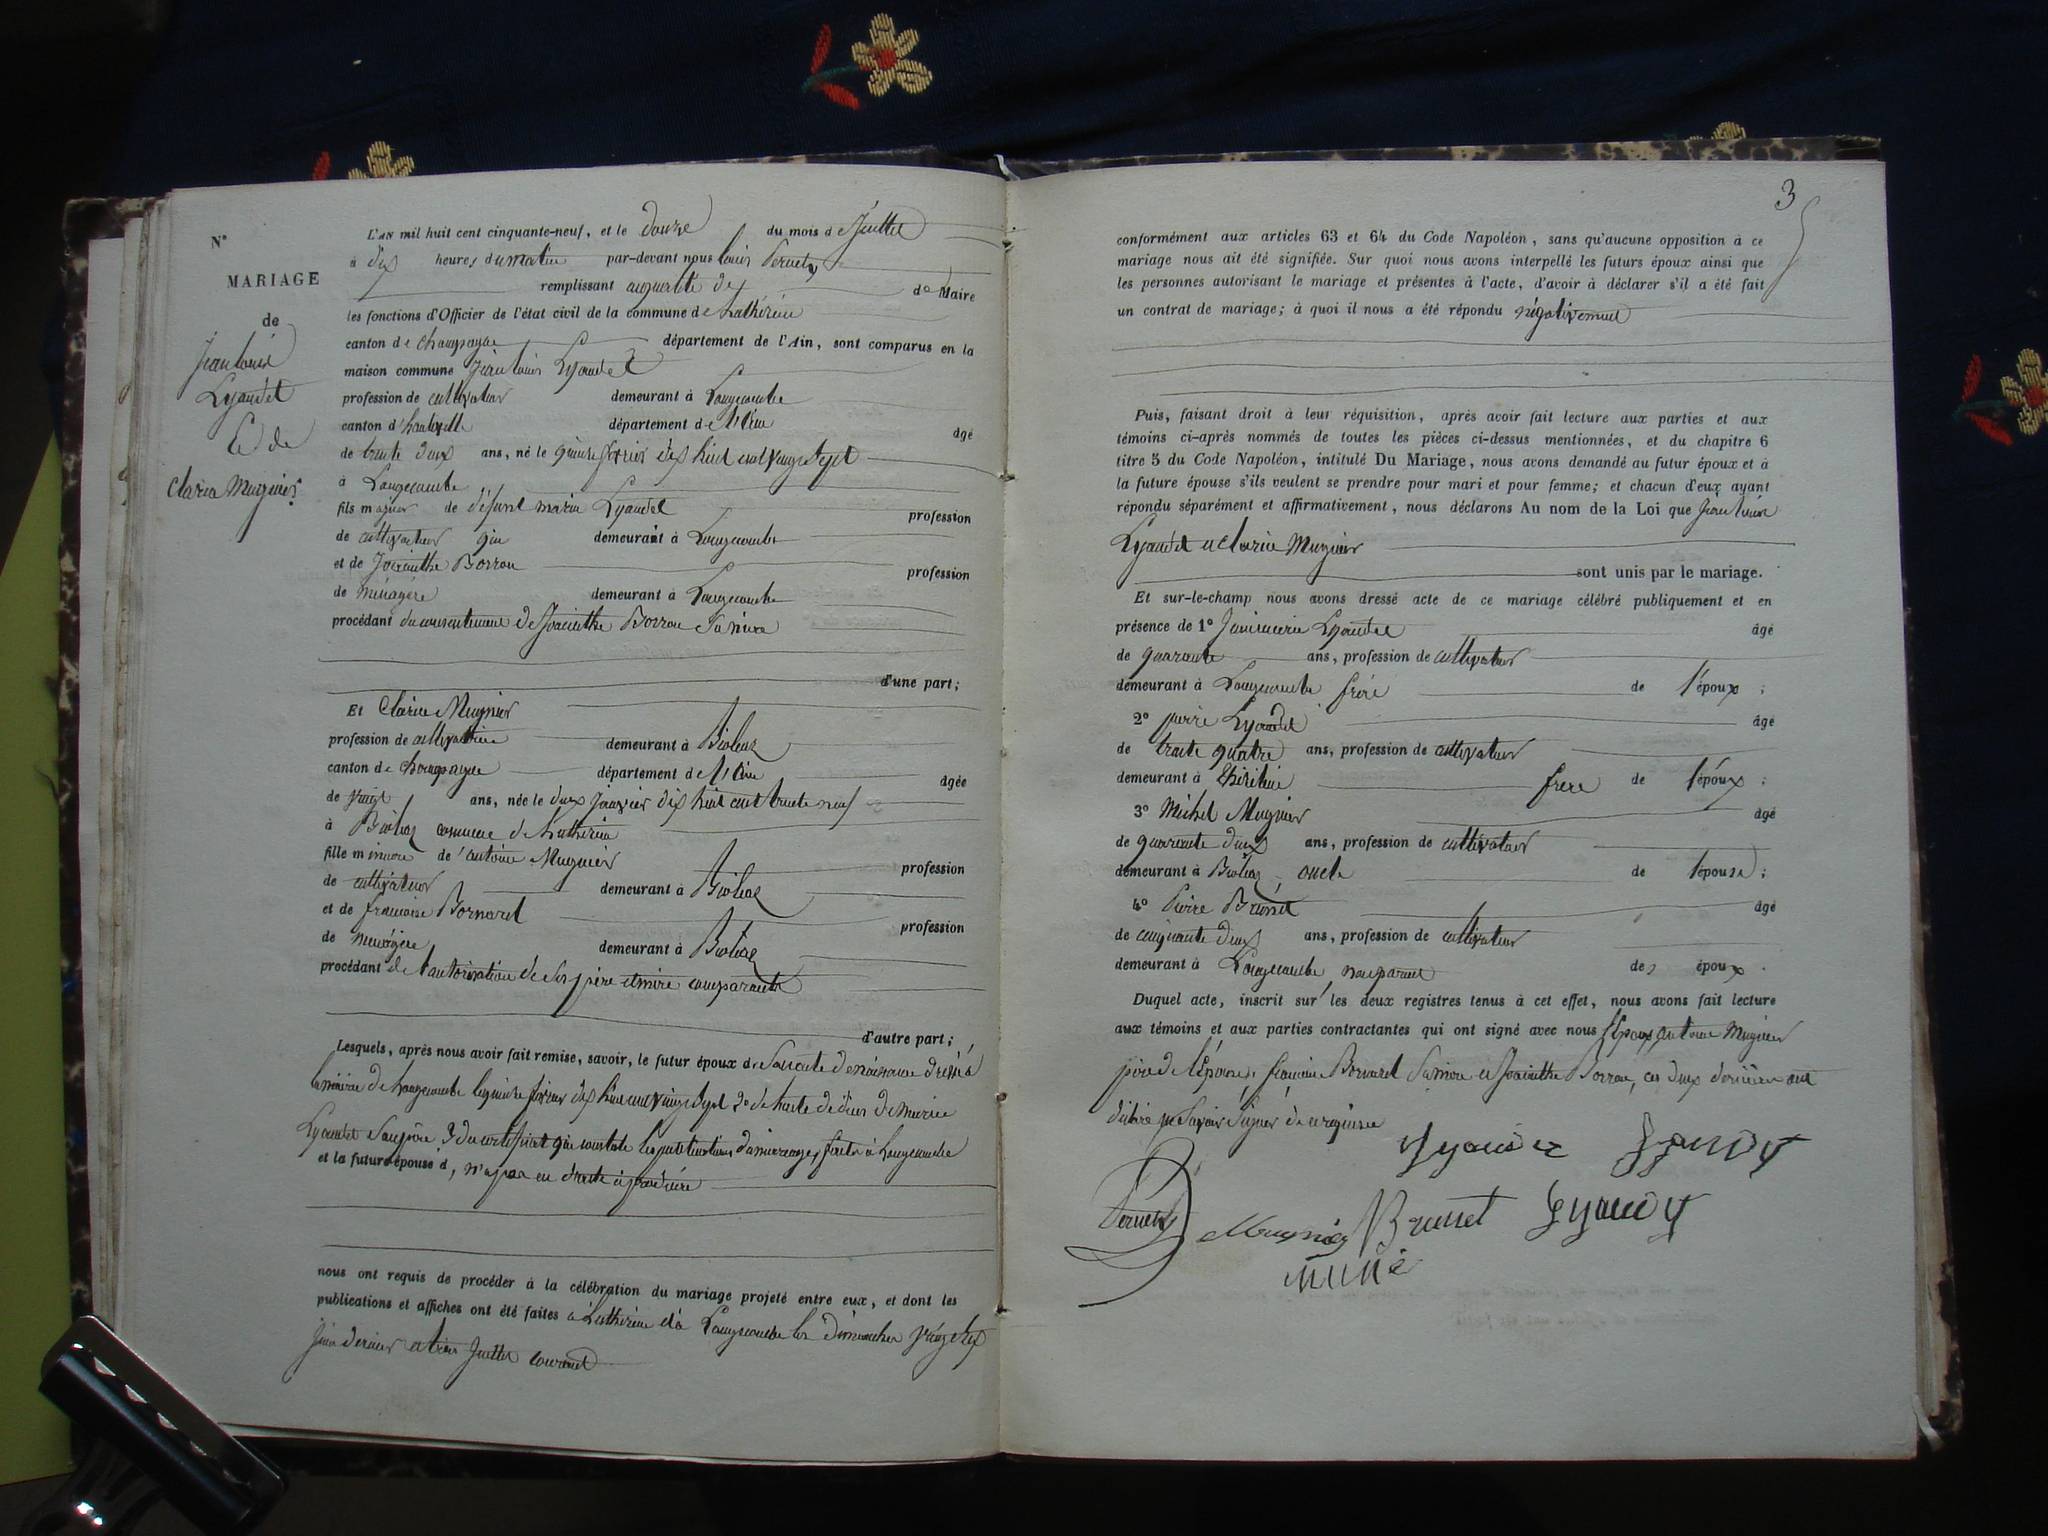 N°
MARIAGE
de
Jean Louis
Lyaudet
Et de
Clarice Mugnier
L'AN mil huit cent cinquante-neuf, et le douze du mois de Juillet
à dix heures du matin par-devant nous Louis Pernety
remplissant de Maire
les fonctions d'Officier de l'état civil de la commune de Luthézieu
canton de Champagne département de l'Ain, sont comparus en la
maison commune Jean Louis Lyaudet
profession de cultivateur demeurant à Longecombe
canton d'hauteville département de l'Ain âgé
de trente deux ans, né le quinze février dix huit cent vingt Sept
à Longecombe
fils majeur de défunt marin Lyaudet profession
de cultivateur qui demeurait à Longecombe
et de Jacinthe Borron profession
de ménagère demeurant à Longecombe
procédant du consentement de Jacinthe Borron Sa mère
d'une part;
Et Clarice Mugnier
profession de cultivatrice demeurant à Bioleaz
canton de Champagne département de l'Ain âgée
de vingt ans, née le deux Janvier dix huit cent trente neuf
à Bioleaz commune de Luthézieu
fille mineure de antoine Mugnier profession
de cultivateur demeurant à Bioleaz
et de francoise Bornaret profession
de ménagère demeurant à Bioleaz
procédant de l'autorisation de Ses père et mère comparants
d'autre part;
Lesquels, après nous avoir fait remise, savoir, le futur époux de Son acte de naissance dressé à
la mairie de Longecombe le quinze février dix huit cent vingt Sept 2° de l'acte de décès de Marin
Lyaudet Son père 3° du certificat qui constate les publications de mariage faites à Longecombe
et la future épouse d, n'a pas eu d'acte à produire
nous ont requis de procéder à la célébration du mariage projeté entre eux, et dont les
publications et affiches ont été faites à Luthézieu et à Longecombe les dimanches vingt Six
Juin dernier et trois Juillet courant
3
conformément aux articles 63 et 64 du Code Napoléon, sans qu'aucune opposition à ce
mariage nous ait été signifiée. Sur quoi nous avons interpellé les futurs époux ainsi que
les personnes autorisant le mariage et présentes à l'acte, d'avoir à déclarer s'il a été fait
un contrat de mariage; à quoi il nous a été répondu négativement
Puis, faisant droit à leur réquisition, après avoir fait lecture aux parties et aux
témoins ci-après nommés de toutes les pièces ci-dessus mentionnées, et du chapitre 6
titre 5 du Code Napoléon, intitulé Du Mariage, nous avons demandé au futur époux et à
la future épouse s'ils veulent se prendre pour mari et pour femme; et chacun d'eux ayant
répondu séparément et affirmativement, nous déclarons Au nom de la Loi que Jean Louis
Lyaudet et Clarice Mugnier
sont unis par le mariage.
Et sur-le-champ nous avons dressé acte de ce mariage célébré publiquement et en
présence de 1° Lyaudet âgé
de quarante ans, profession de cultivateur
demeurant à Longecombe frère de l'époux ;
2° pierre Lyaudet âgé
de trente quatre ans, profession de cultivateur
demeurant à frère de l'époux ;
3° Michel Mugnier âgé
de quarante deux ans, profession de cultivateur
demeurant à Bioleaz oncle de l'épouse ;
4° Pierre Brunet âgé
de cinquante deux ans, profession de cultivateur
demeurant à Longecombe non parent des époux .
Duquel acte, inscrit sur les deux registres tenus à cet effet, nous avons fait lecture
aux témoins et aux parties contractantes qui ont signé avec nous l'époux antoine Mugnier
père de l'épouse, francoise Bornaret Sa mère et Jacinthe Borron, ces deux dernières ont
déclaré ne Savoir Signer de ce requises
Lyaudet Lyaudet
Pernety Mugnier Brunet Lyaudet